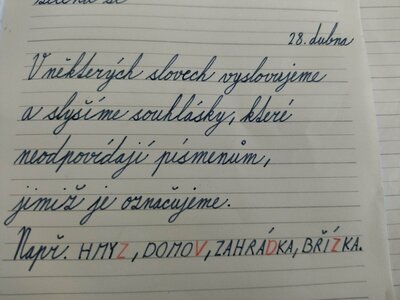 28. dubna
V některých slovech vyslovujeme
a slyšíme souhlásky, které
neodpovídají písmenům,
jimiž je označujeme.
Např. HMYZ, DOMOV, ZAHRÁDKA, BŘÍZKA.